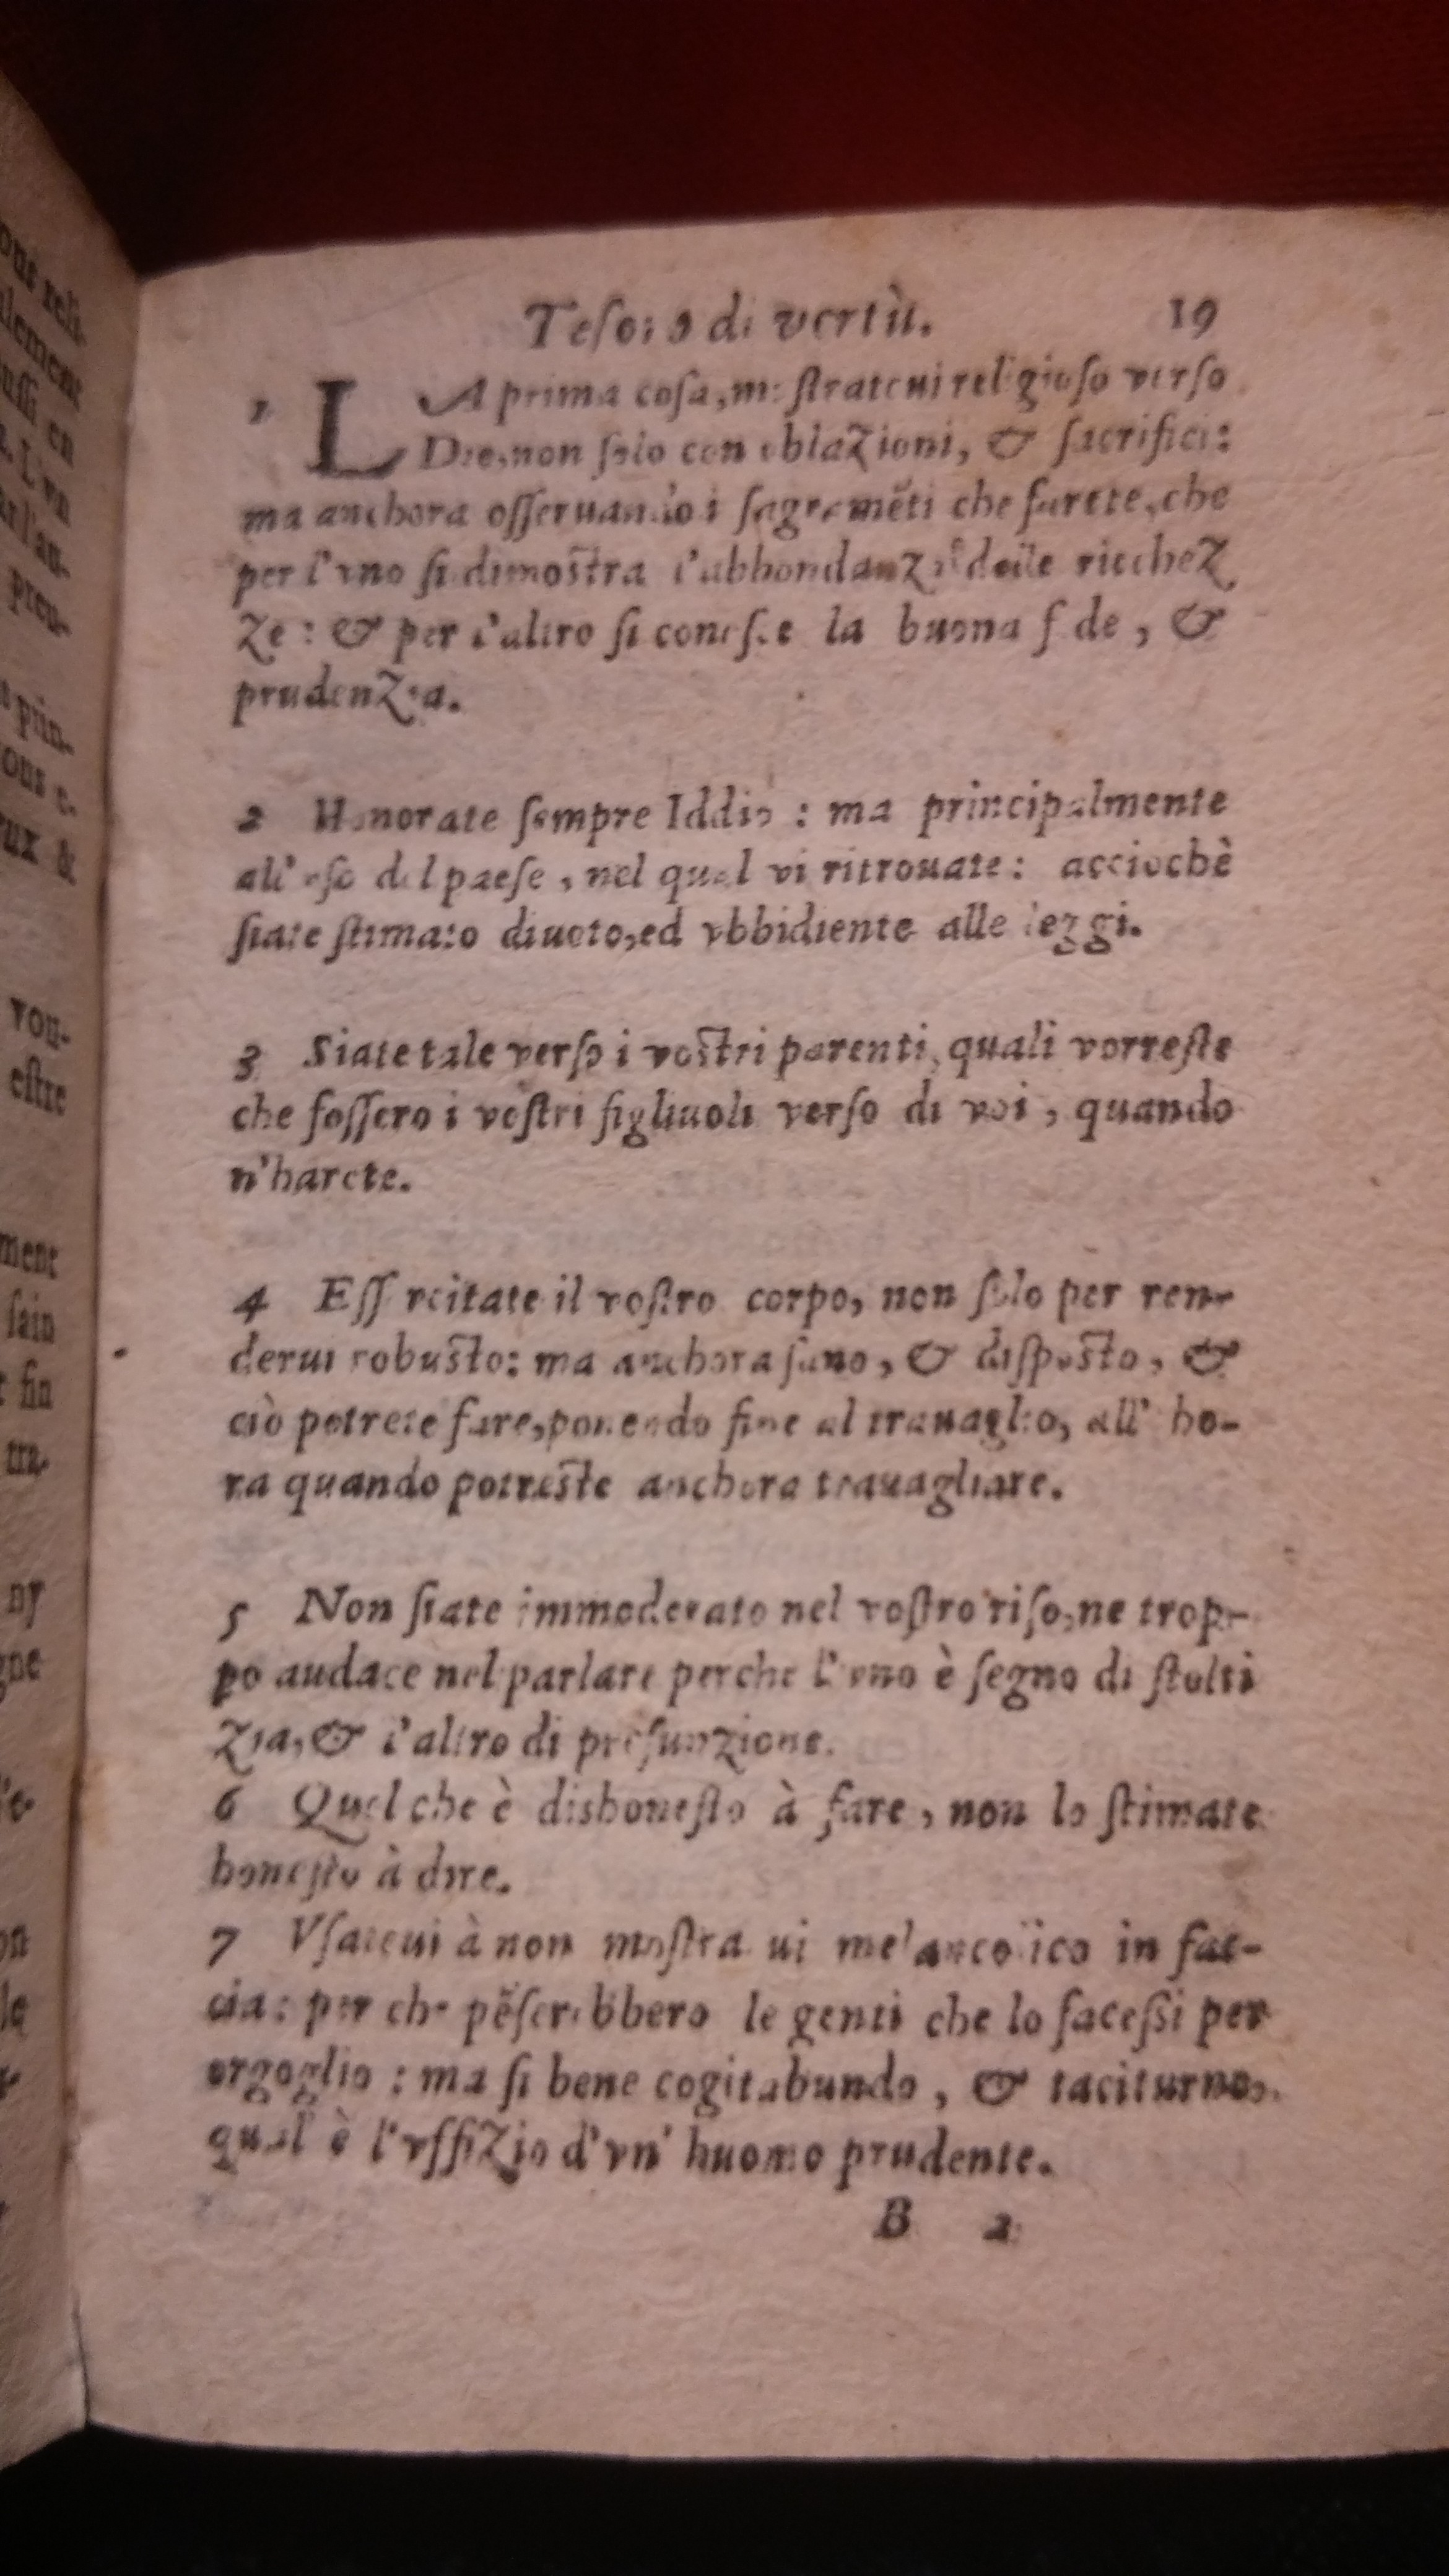 Teſoro di vertù. 19
1 LA prima coſa, moſtrateui religioſo verſo
Dio, non ſolo con oblazioni, & ſacrifici:
ma anchora oſſeruando i ſagramẽti che farete, che
per l'vno ſi dimoſtra l'abbondanza delle ricchez
ze: & per l'altro ſi conoſce la buona fede, &
prudenzia.
2 Honorate ſempre Iddio: ma principalmente
all'vſo del paeſe, nel qual vi ritrouate: acciochè
ſiate ſtimato diuoto, ed vbbidiente alle leggi.
3 Siate tale verſo i voſtri parenti, quali vorreſte
che foſſero i voſtri figliuoli verſo di voi, quando
n'harete.
4 Eſſercitate il voſtro corpo, non ſolo per ren-
derui robuſto: ma anchora ſano, & diſpoſto, &
ciò potrete fare, ponendo fine al trauaglio, all' ho-
ra quando potreſte anchora trauagliare.
5 Non ſiate immoderato nel voſtro riſo, ne trop-
po audace nel parlare perche l'vno è ſegno di ſtolti
zia, & l'altro di preſunzione.
6 Quel che è dishoneſto à fare, non lo ſtimate
honeſto à dire.
7 Vſateui à non moſtrarui melancolico in fac-
cia: per che pẽſerebbero le genti che lo faceſsi per
orgoglio: ma ſi bene cogitabundo, & taciturno,
qual' è l'vffizio d'vn' huomo prudente.
B 2
ons reli-
alement
auſſi en
s. L'vn
par l'au-
preu-
t prin-
ous e-
eux &
vou-
eſtre
ment
ſain
fin
tra-
ny
gne
on